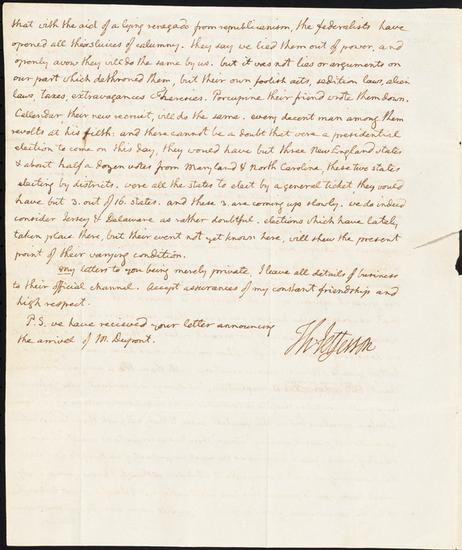 that with the aid of a lying renegado from republicanism, the federalists have
opened all their sluices of calumny. they say we lied them out of power, and
openly avow they will do the same by us. but it was not lies or arguments on
our part which dethroned them, but their own foolish acts, sedition laws, alien
laws, taxes, extravagances & heresies. Porcupine their friend wrote them down.
Callendar their new recruit, will do the same. every decent man among them
revolts at his filth: and there cannot be a doubt that were a presidential
election to come on this day, they would have but three New England states
& about half a dozen votes from Maryland & North Carolina, these two states
electing by districts. were all the states to elect by a general ticket, they would
have but 3. out of 16. states. and these 3. are coming up slowly. we do indeed
consider Jersey & Delaware as rather doubtful. elections which have lately
taken place there, but their event not yet known here, will shew the present
point of their varying condition.
my letters to you being merely private, I leave all details of business
to their official channel. Accept assurances of my constant friendship and
high respect.
Th: Jefferson
P.S. we have recieved your letter announcing
the arrival of M. Dupont.